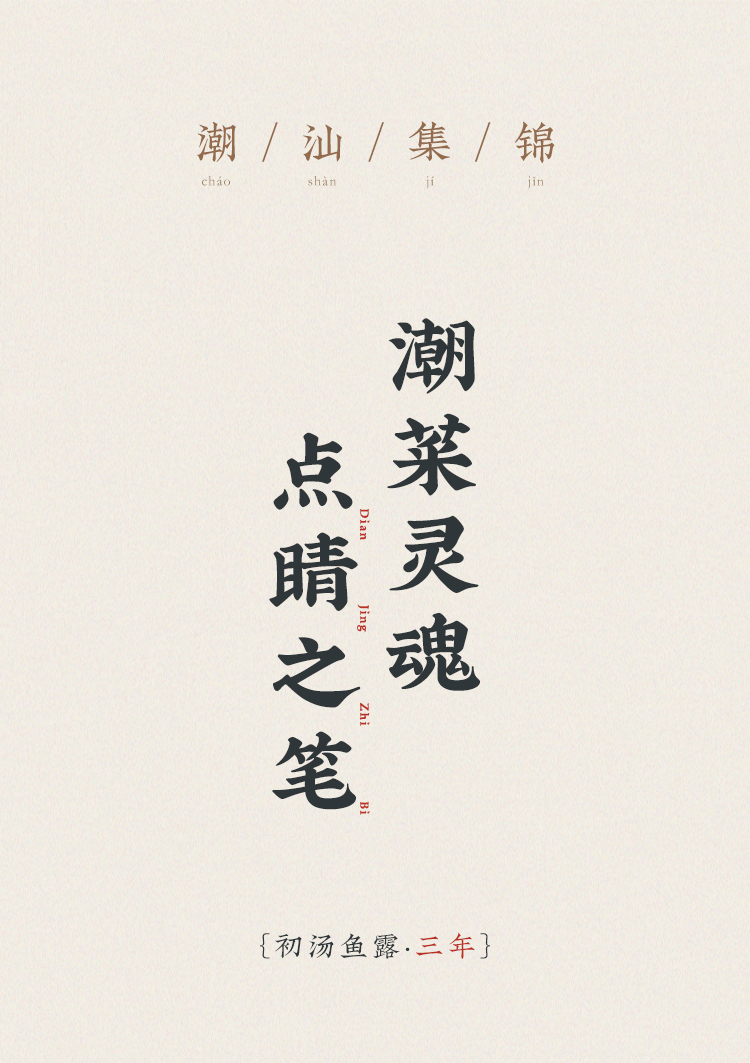 潮/汕/集/锦
cháo shàn jí jǐn
潮菜灵魂
点睛之笔
Dian Jing Zhi Bi
{初汤鱼露·三年}